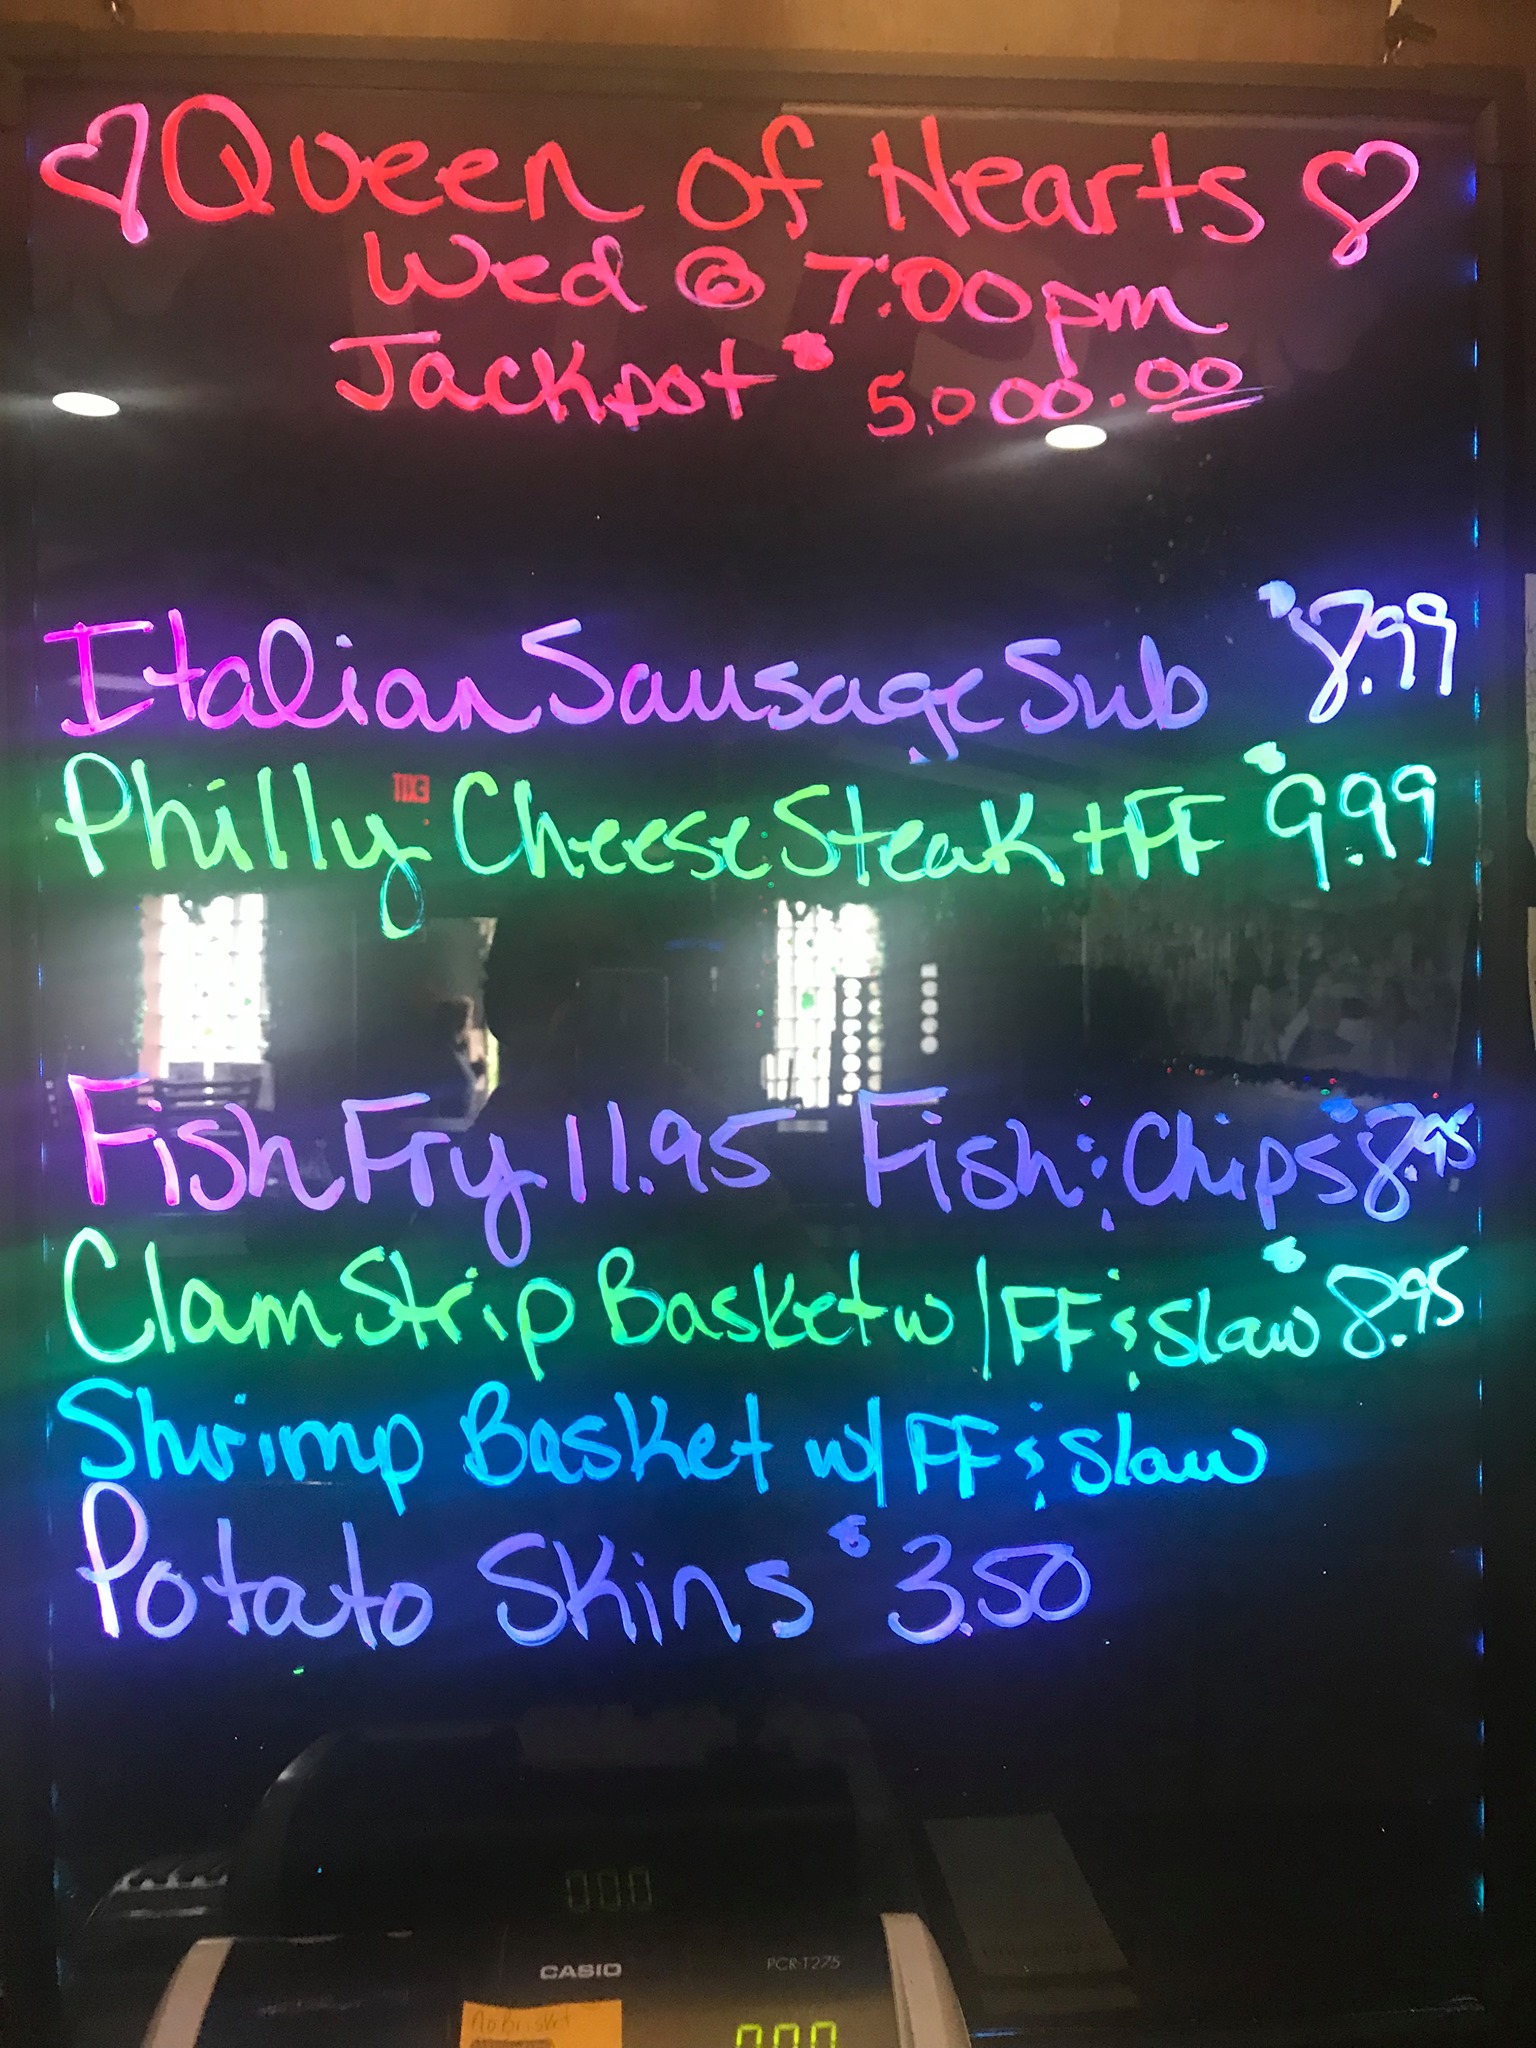 Queen of Hearts
Wed @ 7:00pm
Jackpot $ 5,000.00
Italian Sausage Sub $8.99
Philly Cheese Steak + FF $9.99
Fish Fry 11.95 Fish & Chips $8.95
Clam Strip Basket w/FF & Slaw $8.95
Shrimp Basket w/ FF & Slaw
Potato Skins $3.50
000
CASIO PCR-T275
No Brisket
000